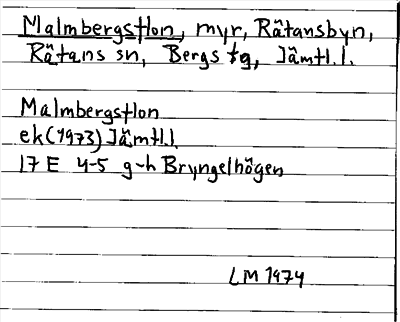 Malmbergsflon, myr, Rätansbyn,
Rätans sn, Bergs tg, Jämtl.l.
Malmbergsflon
ek (1973) Jämtl.l.
17 E 4-5 g-h Bryngelhögen
LM 1974